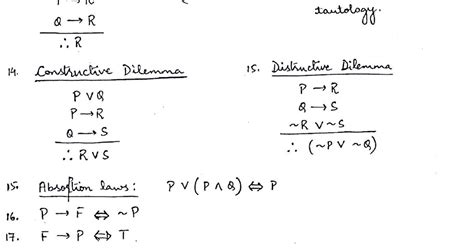 P → R
Q → R
∴ R
tautology.
14. Constructive Dilemma
P ∨ Q
P → R
Q → S
∴ R ∨ S
15. Distructive Dilemma
P → R
Q → S
~R ∨ ~S
∴ (~P ∨ ~Q)
15. Absorption laws: P ∨ (P ∧ Q) ⇔ P
16. P → F ⇔ ~P
17. F → P ⇔ T.